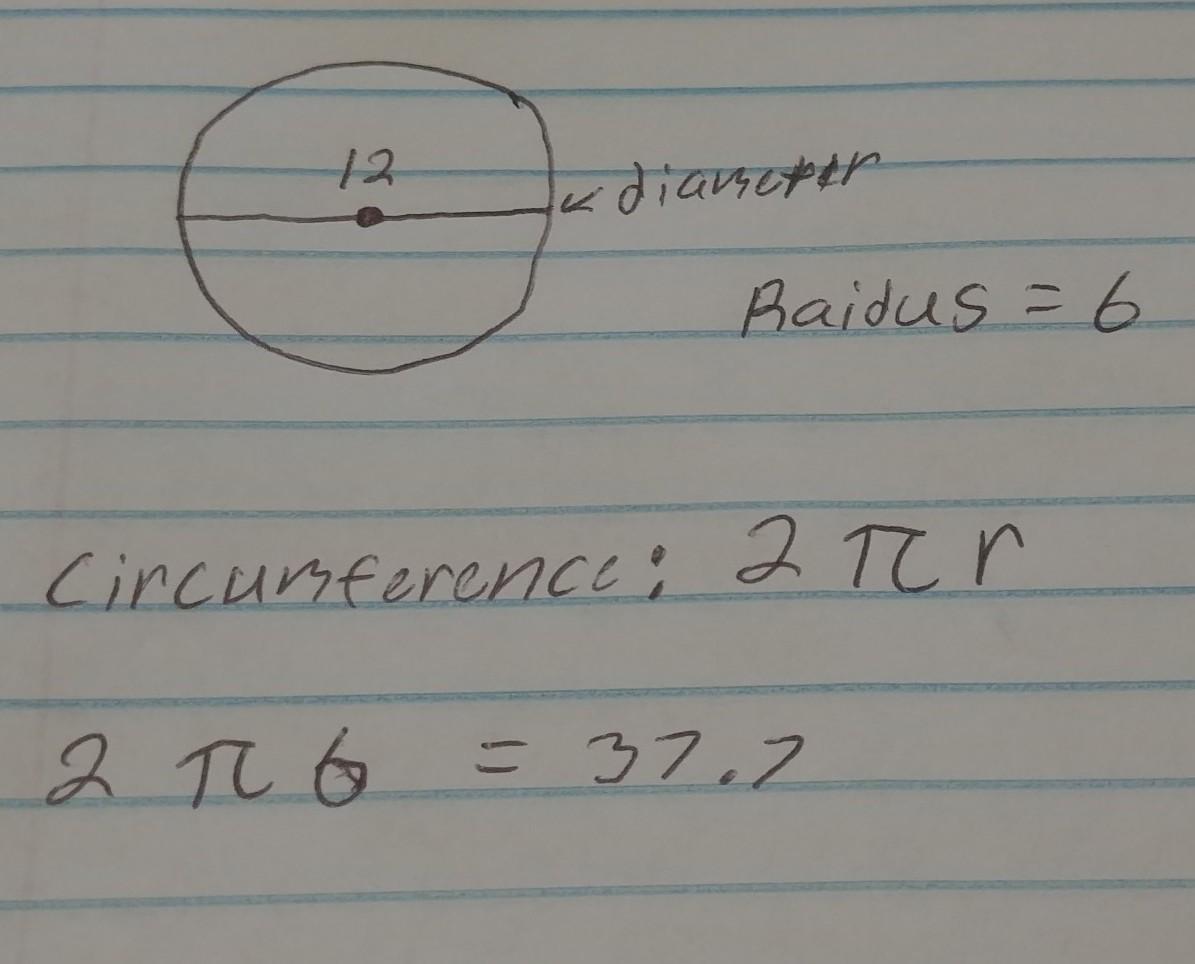 12
diameter
Raidus = 6
Circumference: 2 π r
2 π 6 = 37.7